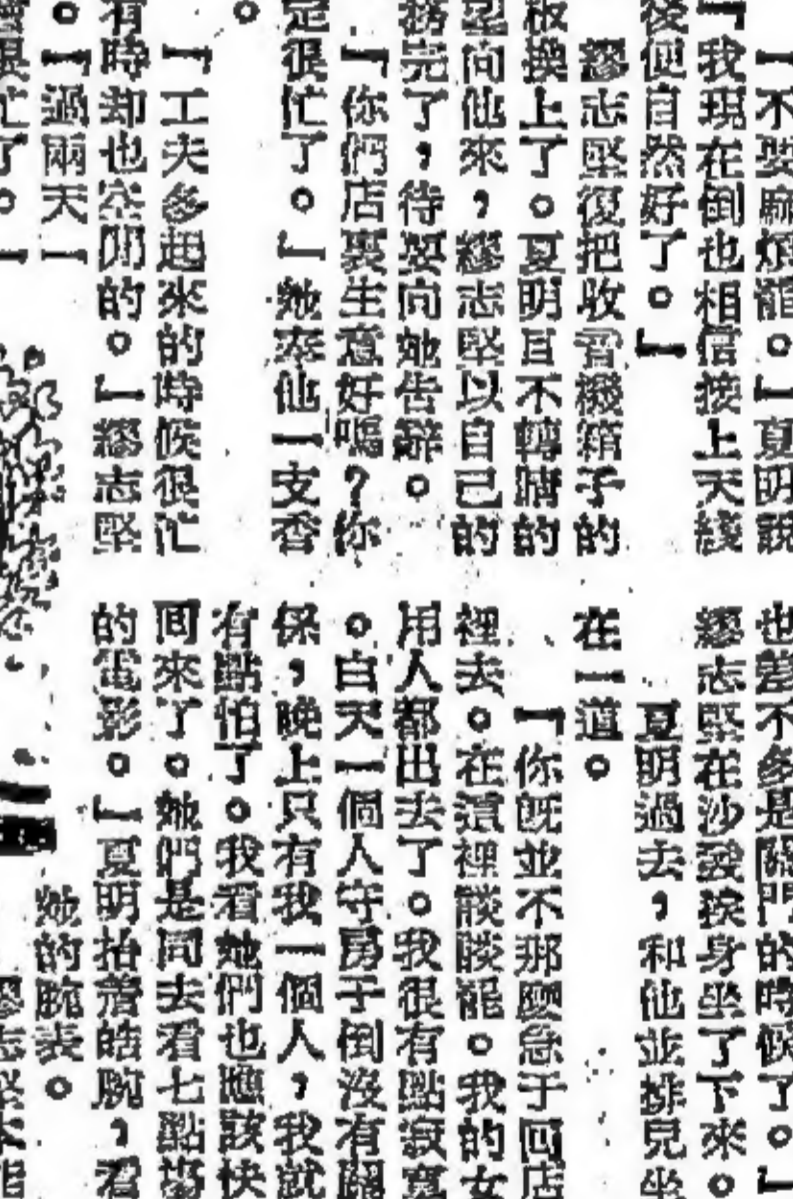 不要麻煩罷。」夏明說
「我現在倒也相信接上天綫
後便自然好了。」
繆志堅復把收音機箱子的
板換上了。夏明目不轉睛的
望向他來,繆志堅以自己的
務完了,待要向她告辭。
「你們店裏生意好嗎?你
定很忙了。」她奉他一支香
。
「工夫多起來的時候很忙
有時却也空閒的。」繆志堅
。「過兩天一
很忙了。」
也差不多是關門的時候了。」
繆志堅在沙發挨身坐了下來。
夏明過去,和他並排兒坐
在一道。
「你旣並不那麼急于囘店
裡去。在這裡談談罷。我的女
用人都出去了。我很有點寂寞
。白天一個人守房子倒沒有關
係,晚上只有我一個人,我就
有點怕了。我看她們也應該快
囘來了。她們是同去看七點塲
的電影。」夏明抬着皓腕,看
她的腕表。